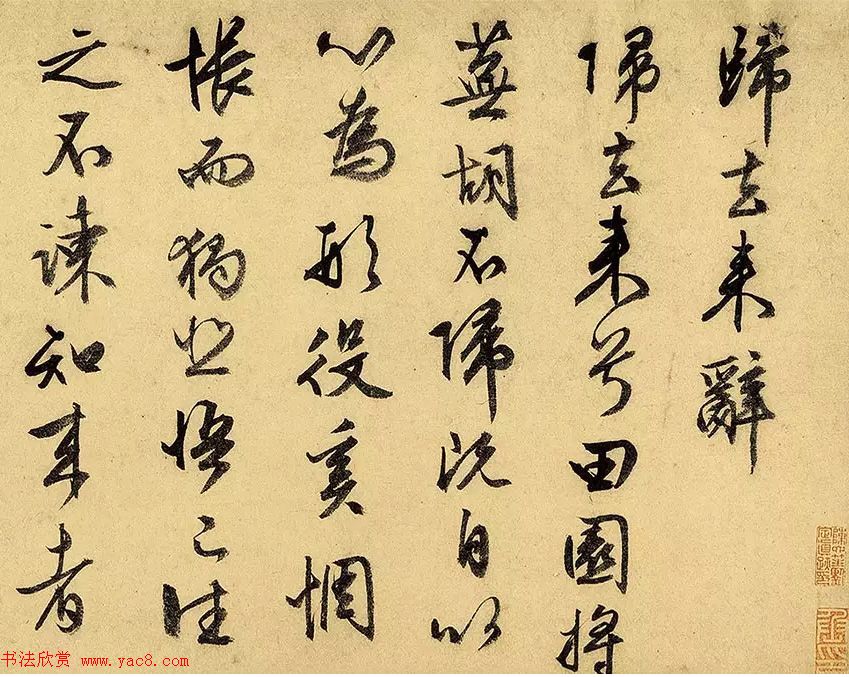 歸去来辭
歸去来兮田園將
蕪胡不歸既自以
心為形役奚惆
悵而獨悲悟已往
之不諫知来者
书法欣赏 www.yac8.com